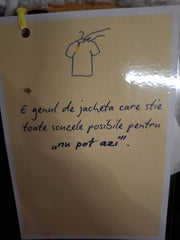 E genul de jacheta care stie
toate scuzele posibile pentru
„nu pot azi”.